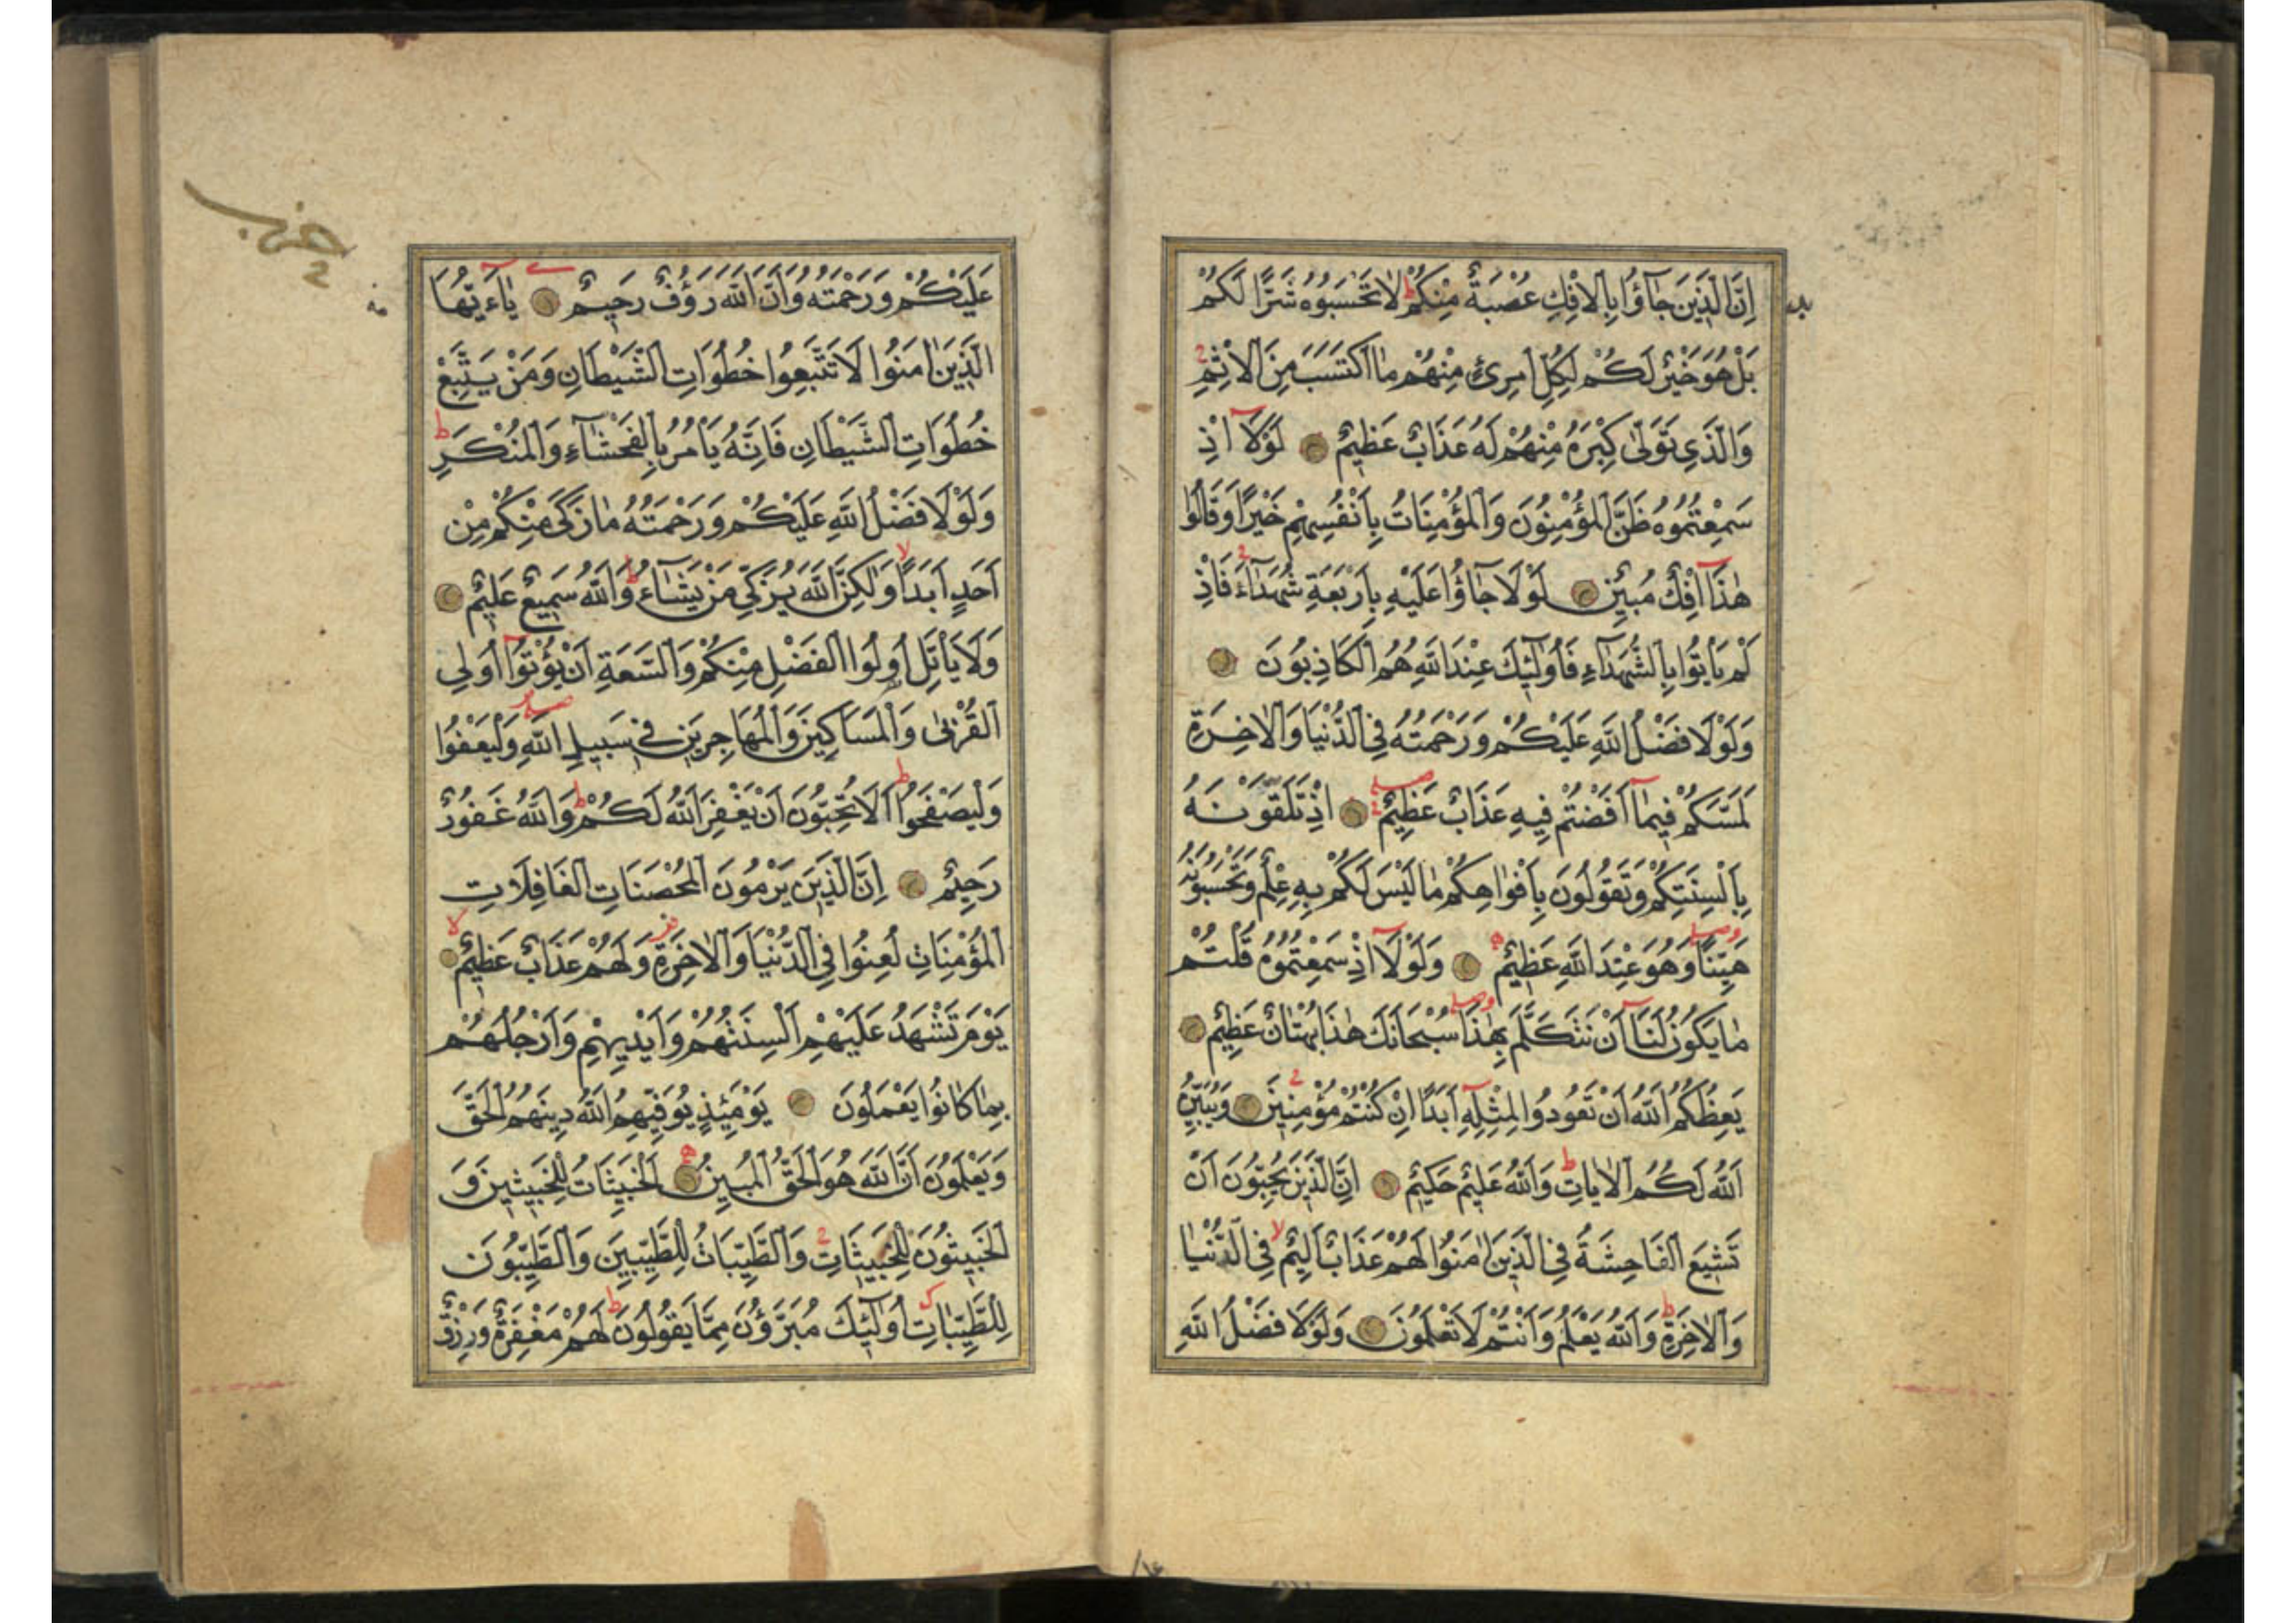 اِنَّ الَّذِينَ جَآؤُا بِالْاِفْكِ عُصْبَةٌ مِنْكُمْ ط لَا تَحْسَبُوهُ شَرًّا لَكُمْ
بَلْ هُوَ خَيْرٌ لَكُمْ لِكُلِّ امْرِئٍ مِنْهُمْ مَا اكْتَسَبَ مِنَ الْاِثْمِ
وَالَّذِي تَوَلّٰى كِبْرَهُ مِنْهُمْ لَهُ عَذَابٌ عَظِيمٌ لَوْلَآ اِذْ
سَمِعْتُمُوهُ ظَنَّ الْمُؤْمِنُونَ وَالْمُؤْمِنَاتُ بِاَنْفُسِهِمْ خَيْرًا وَقَالُوا
هٰذَآ اِفْكٌ مُبِينٌ لَوْلَا جَآؤُا عَلَيْهِ بِاَرْبَعَةِ شُهَدَآءَ فَاِذْ
لَمْ يَأْتُوا بِالشُّهَدَآءِ فَاُولٰٓئِكَ عِنْدَ اللّٰهِ هُمُ الْكَاذِبُونَ
وَلَوْلَا فَضْلُ اللّٰهِ عَلَيْكُمْ وَرَحْمَتُهُ فِي الدُّنْيَا وَالْاٰخِرَةِ
لَمَسَّكُمْ فِيمَآ اَفَضْتُمْ فِيهِ عَذَابٌ عَظِيمٌ صلى اِذْ تَلَقَّوْنَهُ
بِاَلْسِنَتِكُمْ وَتَقُولُونَ بِاَفْوَاهِكُمْ مَا لَيْسَ لَكُمْ بِهِ عِلْمٌ وَتَحْسَبُونَهُ
هَيِّنًا وصلى وَهُوَ عِنْدَ اللّٰهِ عَظِيمٌ وَلَوْلَآ اِذْ سَمِعْتُمُوهُ قُلْتُمْ
مَا يَكُونُ لَنَآ اَنْ نَتَكَلَّمَ بِهٰذَا وصلى سُبْحَانَكَ هٰذَا بُهْتَانٌ عَظِيمٌ
يَعِظُكُمُ اللّٰهُ اَنْ تَعُودُوا لِمِثْلِهِ اَبَدًا اِنْ كُنْتُمْ مُؤْمِنِينَ وَيُبَيِّنُ
اللّٰهُ لَكُمُ الْاٰيَاتِ ط وَاللّٰهُ عَلِيمٌ حَكِيمٌ اِنَّ الَّذِينَ يُحِبُّونَ اَنْ
تَشِيعَ الْفَاحِشَةُ فِي الَّذِينَ اٰمَنُوا لَهُمْ عَذَابٌ اَلِيمٌ لا فِي الدُّنْيَا
وَالْاٰخِرَةِ ط وَاللّٰهُ يَعْلَمُ وَاَنْتُمْ لَا تَعْلَمُونَ وَلَوْلَا فَضْلُ اللّٰهِ
حزب
عَلَيْكُمْ وَرَحْمَتُهُ وَاَنَّ اللّٰهَ رَؤُفٌ رَحِيمٌ يَآءَيُّهَا
الَّذِينَ اٰمَنُوا لَا تَتَّبِعُوا خُطُوَاتِ الشَّيْطَانِ وَمَنْ يَتَّبِعْ
خُطُوَاتِ الشَّيْطَانِ فَاِنَّهُ يَأْمُرُ بِالْفَحْشَآءِ وَالْمُنْكَرِ ط
وَلَوْلَا فَضْلُ اللّٰهِ عَلَيْكُمْ وَرَحْمَتُهُ مَا زَكٰى مِنْكُمْ مِنْ
اَحَدٍ اَبَدًا لا وَلٰكِنَّ اللّٰهَ يُزَكِّي مَنْ يَشَآءُ ط وَاللّٰهُ سَمِيعٌ عَلِيمٌ
وَلَا يَأْتَلِ اُولُوا الْفَضْلِ مِنْكُمْ وَالسَّعَةِ اَنْ يُؤْتُوٓا اُولِي
الْقُرْبٰى وَالْمَسَاكِينَ وَالْمُهَاجِرِينَ فِي سَبِيلِ اللّٰهِ صلى وَلْيَعْفُوا
وَلْيَصْفَحُوا ط اَلَا تُحِبُّونَ اَنْ يَغْفِرَ اللّٰهُ لَكُمْ ط وَاللّٰهُ غَفُورٌ
رَحِيمٌ اِنَّ الَّذِينَ يَرْمُونَ الْمُحْصَنَاتِ الْغَافِلَاتِ
الْمُؤْمِنَاتِ لُعِنُوا فِي الدُّنْيَا وَالْاٰخِرَةِ وَلَهُمْ عَذَابٌ عَظِيمٌ لا
يَوْمَ تَشْهَدُ عَلَيْهِمْ اَلْسِنَتُهُمْ وَاَيْدِيهِمْ وَاَرْجُلُهُمْ
بِمَا كَانُوا يَعْمَلُونَ يَوْمَئِذٍ يُوَفِّيهِمُ اللّٰهُ دِينَهُمُ الْحَقَّ
وَيَعْلَمُونَ اَنَّ اللّٰهَ هُوَ الْحَقُّ الْمُبِينُ اَلْخَبِيثَاتُ لِلْخَبِيثِينَ وَ
الْخَبِيثُونَ لِلْخَبِيثَاتِ وَالطَّيِّبَاتُ لِلطَّيِّبِينَ وَالطَّيِّبُونَ
لِلطَّيِّبَاتِ اُولٰٓئِكَ مُبَرَّؤُنَ مِمَّا يَقُولُونَ ط لَهُمْ مَغْفِرَةٌ وَرِزْقٌ